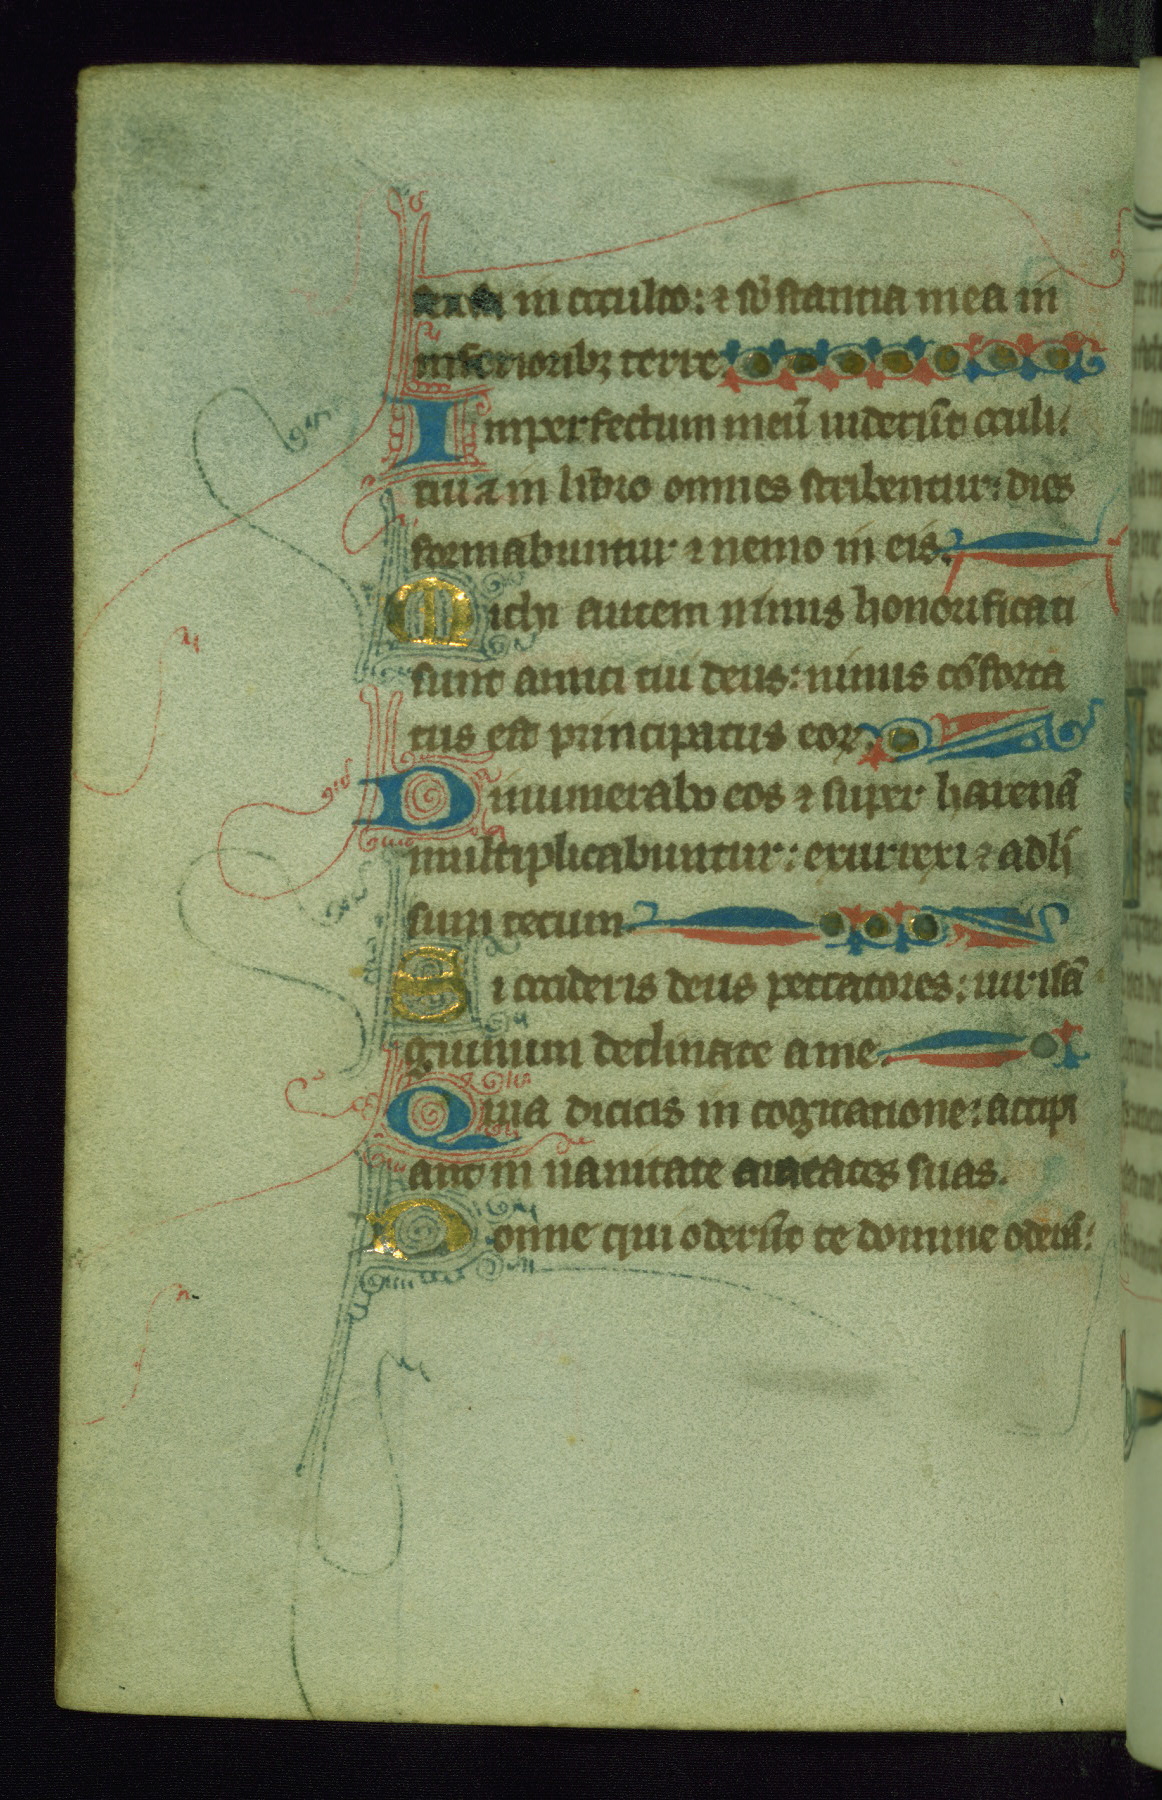 in occulto: ⁊ sb̄stantia mea in
inferioribꝫ terre.
Inperfectum meū uiderūt oculi
tui ⁊ in libro omnes scribentur: dies
formabuntur ⁊ nemo in eis.
Michi autem nimis honorificati
sunt amici tui deus: nimis cōforta
tus est principatus eoꝝ.
Dinumerabo eos ⁊ super harenā
multiplicabuntur: exurrexi ⁊ adh̄
sum tecum.
Si occideris deus peccatores: uiri sā
guinum declinate a me.
Quia dicitis in cogitatione: accipi
ant in uanitate ciuitates suas.
Nonne qui oderūt te domine oderā: